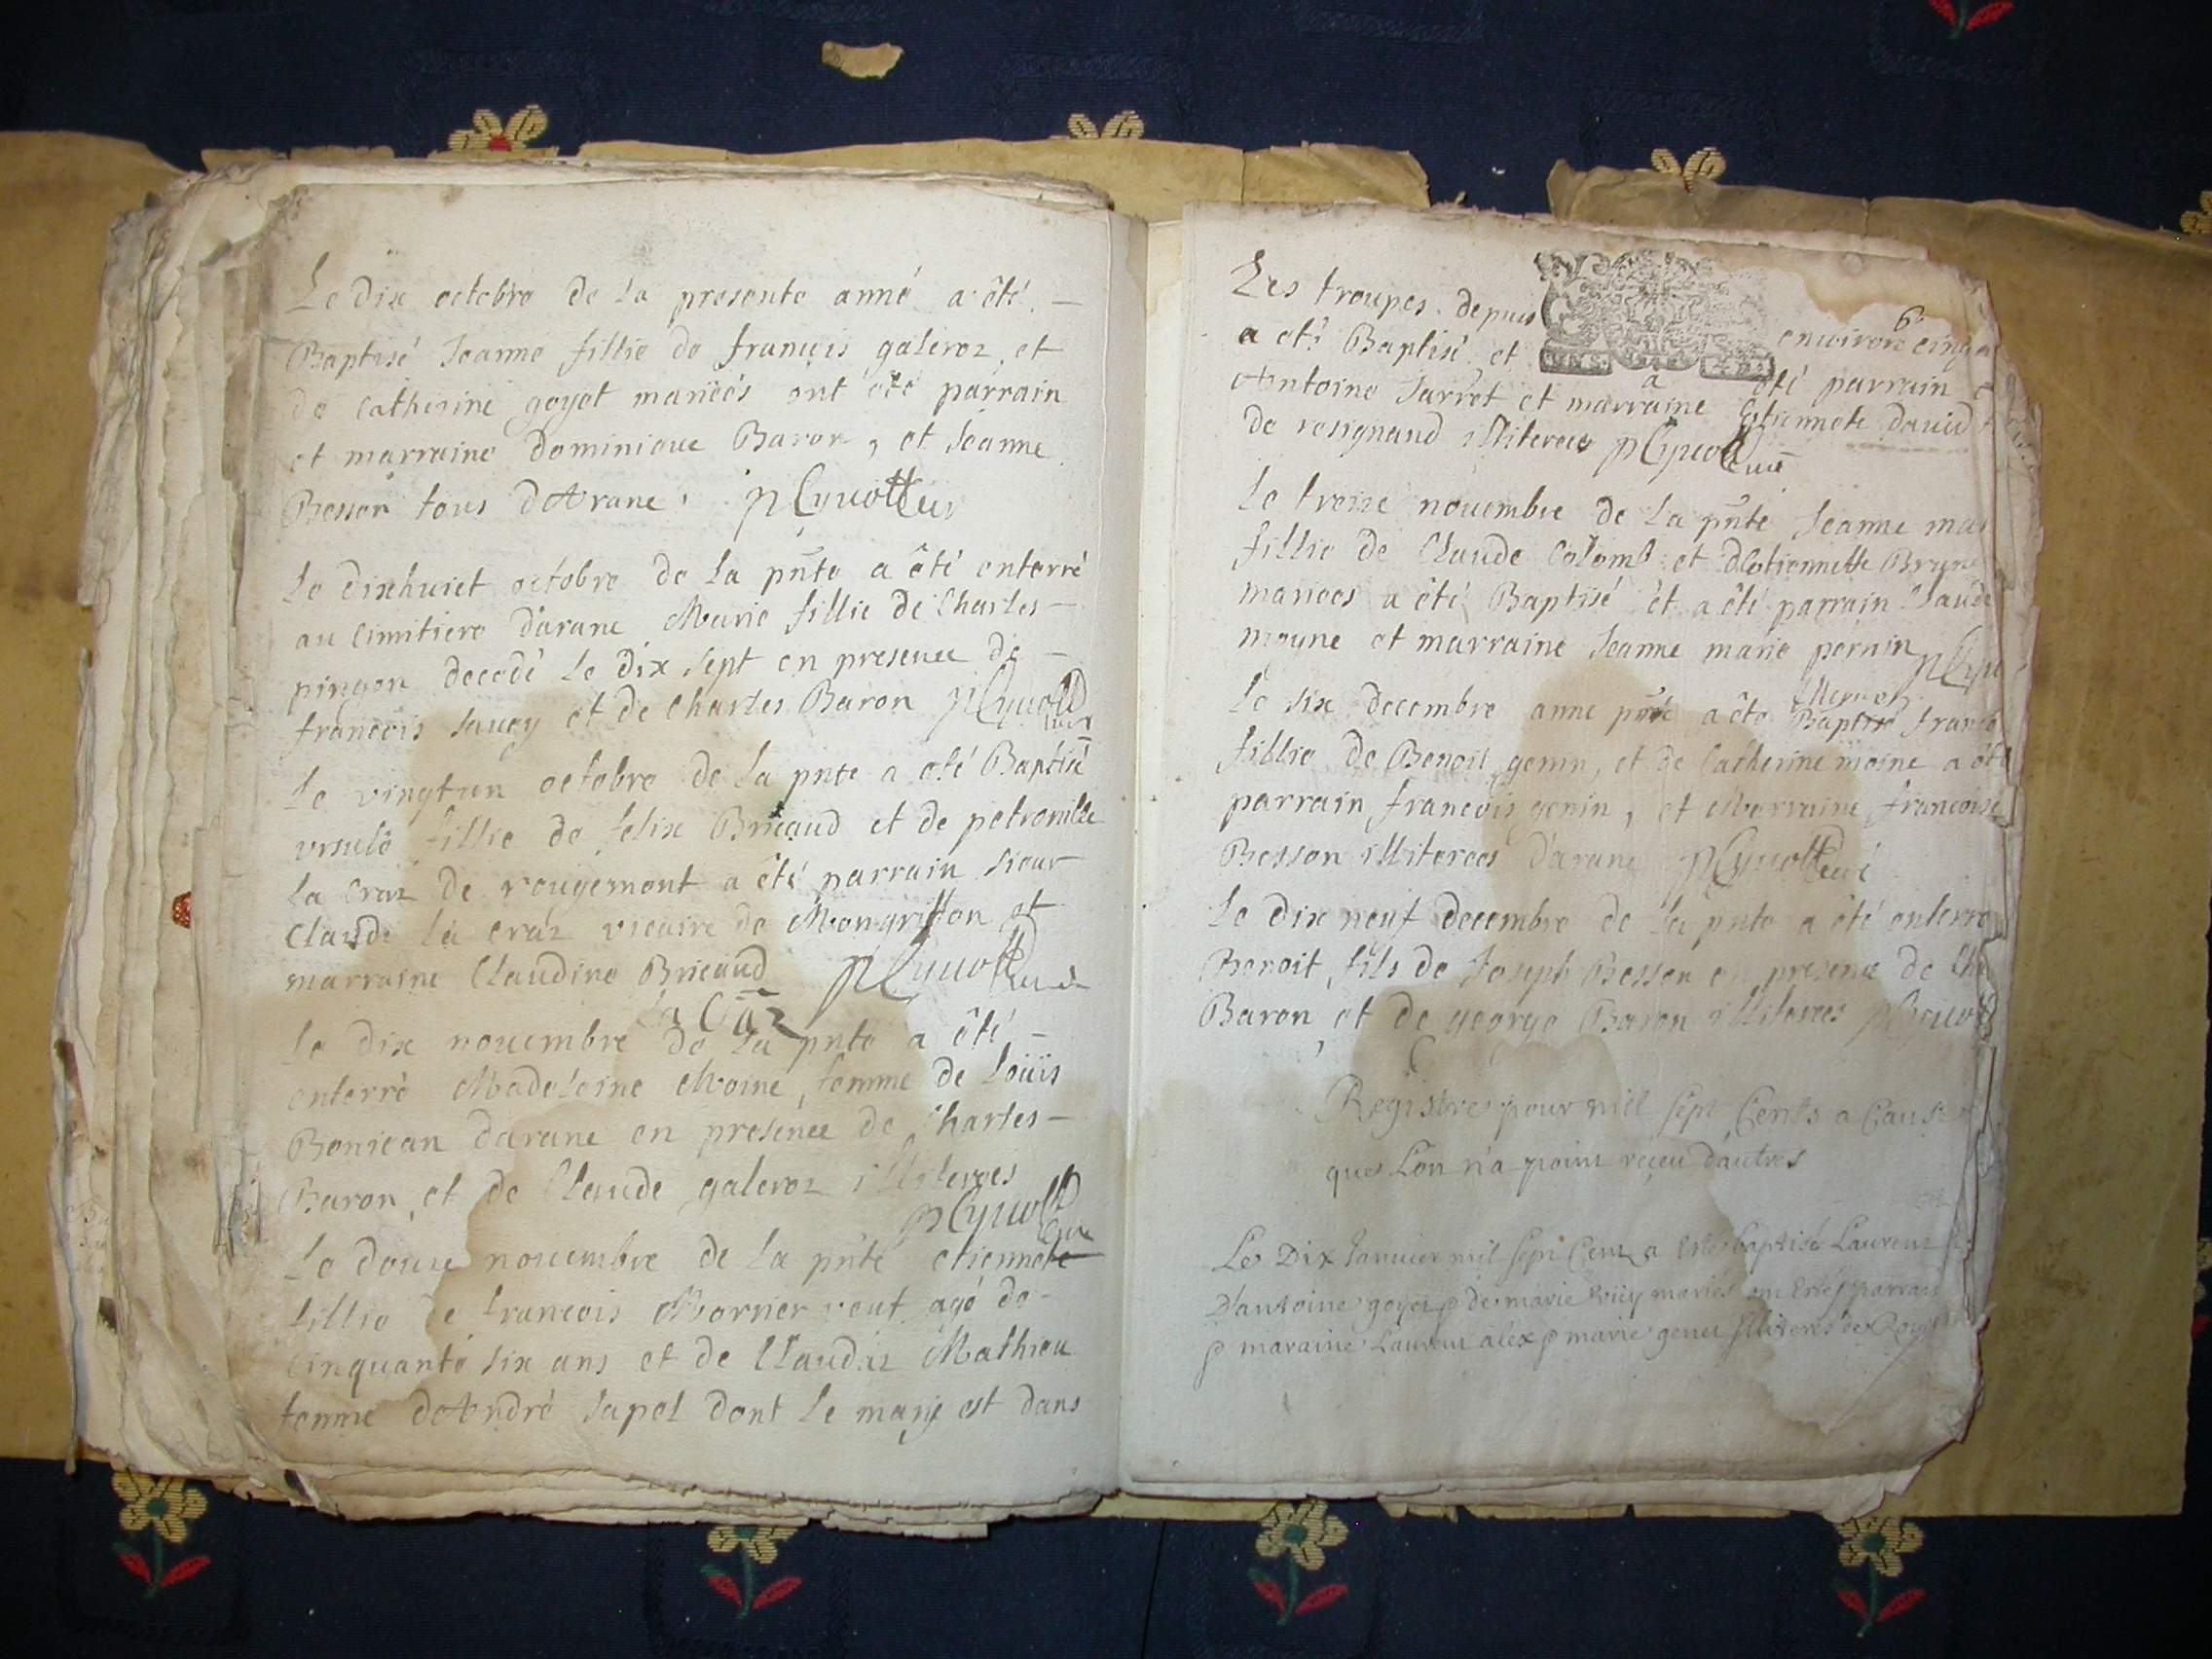 Le dix octobre de la presente anné a été
Baptisé Jeanne fillie de francois galeroz et
de Catherine goyot mariées ont été parrain
et marraine dominique Baron, et Jeanne
Besson tous dArane
Le dixhuict octobre de la pnte a été enterré
au Cimitiere darane Marie fillie de Charles
pingon decedé le dix sept en presence de
francois Savey et de Charles Baron
Le vingtun octobre de la pnte a été Baptisé
ursule fillie de felix Bricaud et de petronille
la Craz de rougemont a été parrain sieur
Claude la Craz vicaire de Mongriffon et
marraine Claudine Bricaud
la Craz
Le dix novembre de la pnte a été
enterré Madeleine Moine, femme de Loüis
Bonjean darane en presence de Charles
Baron, et de Claude galeroz illiterees
Le douze novembre de la pnte etiennete
fillie de francois Mornier veuf agé de
Cinquante six ans et de Claudaz Mathieu
femme dAndré Japel dont le marÿ est dans
Les troupes depuis environ cinq
6
a eté Baptisé et a été parrain
Antoine Jarret et marraine Estiennete david
de resignand illiterees
Le treize novembre de la pnte Jeanne
fillie de Claude Colomb et dEtiennette
mariees a été Baptisé et a été parrain Claude
moyne et marraine Jeanne marie pernin
Le six decembre anne pnte a éte Baptise
fillie de Benoit genin, et de Catherine moine a été
parrain francois genin, et Marraine francoise
Besson illiterees darane
Le dix neuf decembre de la pnte a été enterré
Benoit, fils de Joseph Besson en presence de
Baron, et de george Baron illiterees
Registre pour mil sept Cents a Cause
que Lon n'a point reçeu d'autres
Le Dix Janvier mil sept Cent a Esté baptisé Laurent
D'antoine goyet & de marie mariés ont Esté parrain
& maraine Laurent alex & marie genet